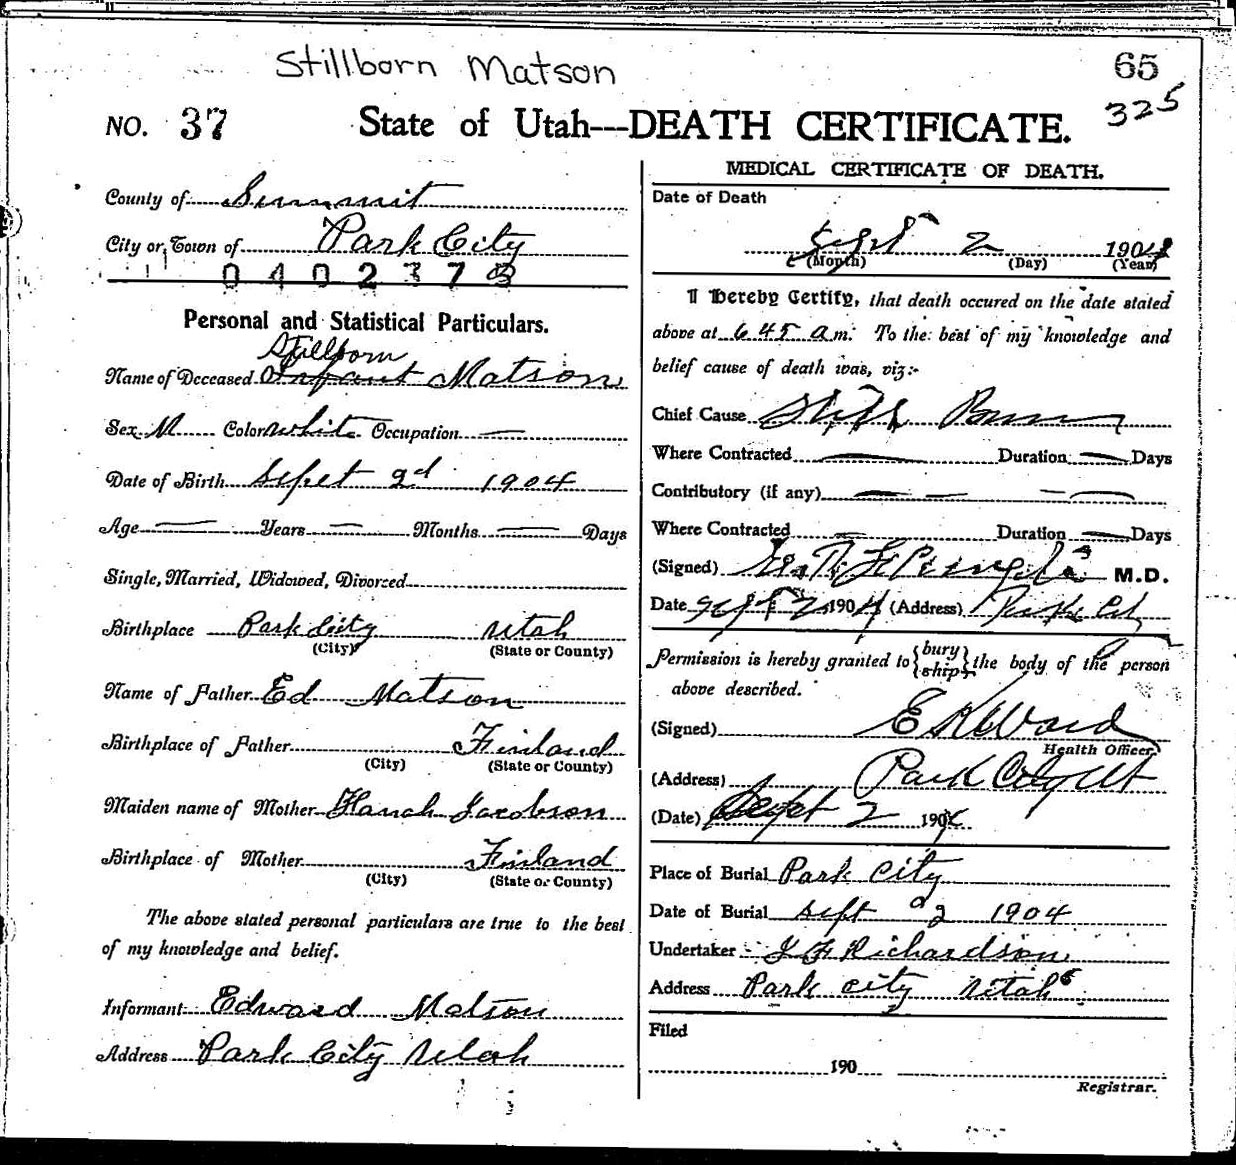 Stillborn Matson
65
325
NO. 37 State of Utah---DEATH CERTIFICATE.
County of Summit
City or Town of Park City
0402373
Personal and Statistical Particulars.
Stillborn
Name of Deceased Infant Matson
Sex M Color White Occupation —
Date of Birth Sept 2d 1904
Age — Years — Months — Days
Single, Married, Widowed, Divorced
Birthplace Park City Utah
(City) (State or County)
Name of Father Ed Matson
Birthplace of Father Finland
(City) (State or County)
Maiden name of Mother Hanah Jacobson
Birthplace of Mother Finland
(City) (State or County)
The above stated personal particulars are true to the best
of my knowledge and belief.
Informant Edward Matson
Address Park City Utah
MEDICAL CERTIFICATE OF DEATH.
Date of Death
Sept 2 1904
(Month) (Day) (Year)
I Hereby Certify, that death occured on the date stated
above at 6 45 a m. To the best of my knowledge and
belief cause of death was, viz:-
Chief Cause Still Born
Where Contracted — Duration — Days
Contributory (if any) — — — —
Where Contracted — Duration — Days
(Signed) M.D.
Date Sept 2 1904 (Address) Park City
Permission is hereby granted to {bury
{ship} the body of the person
above described.
(Signed) E K Ward
Health Officer.
(Address) Park City Ut
(Date) Sept 2 1904
Place of Burial Park City
Date of Burial Sept 2 1904
Undertaker Richardson
Address Park City Utah
Filed
190
Registrar.